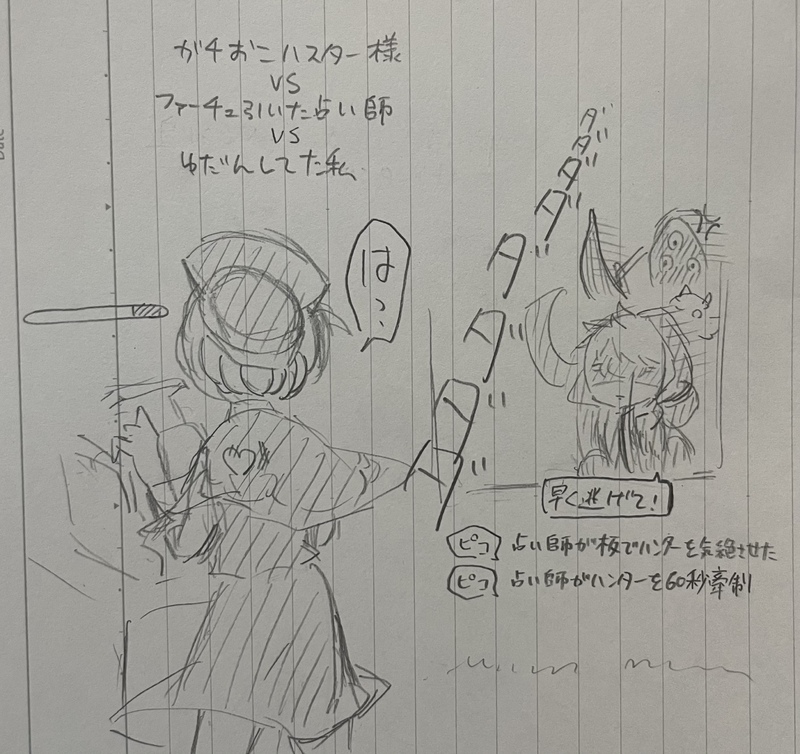 ガチおこハスター様
VS
ファーチュ引いた占い師
VS
ゆだんしてた私
は?
ダダダダダダダダ
早く逃げて!
ピコ 占い師が板でハンターを気絶させた
ピコ 占い師がハンターを60秒牽制
Date